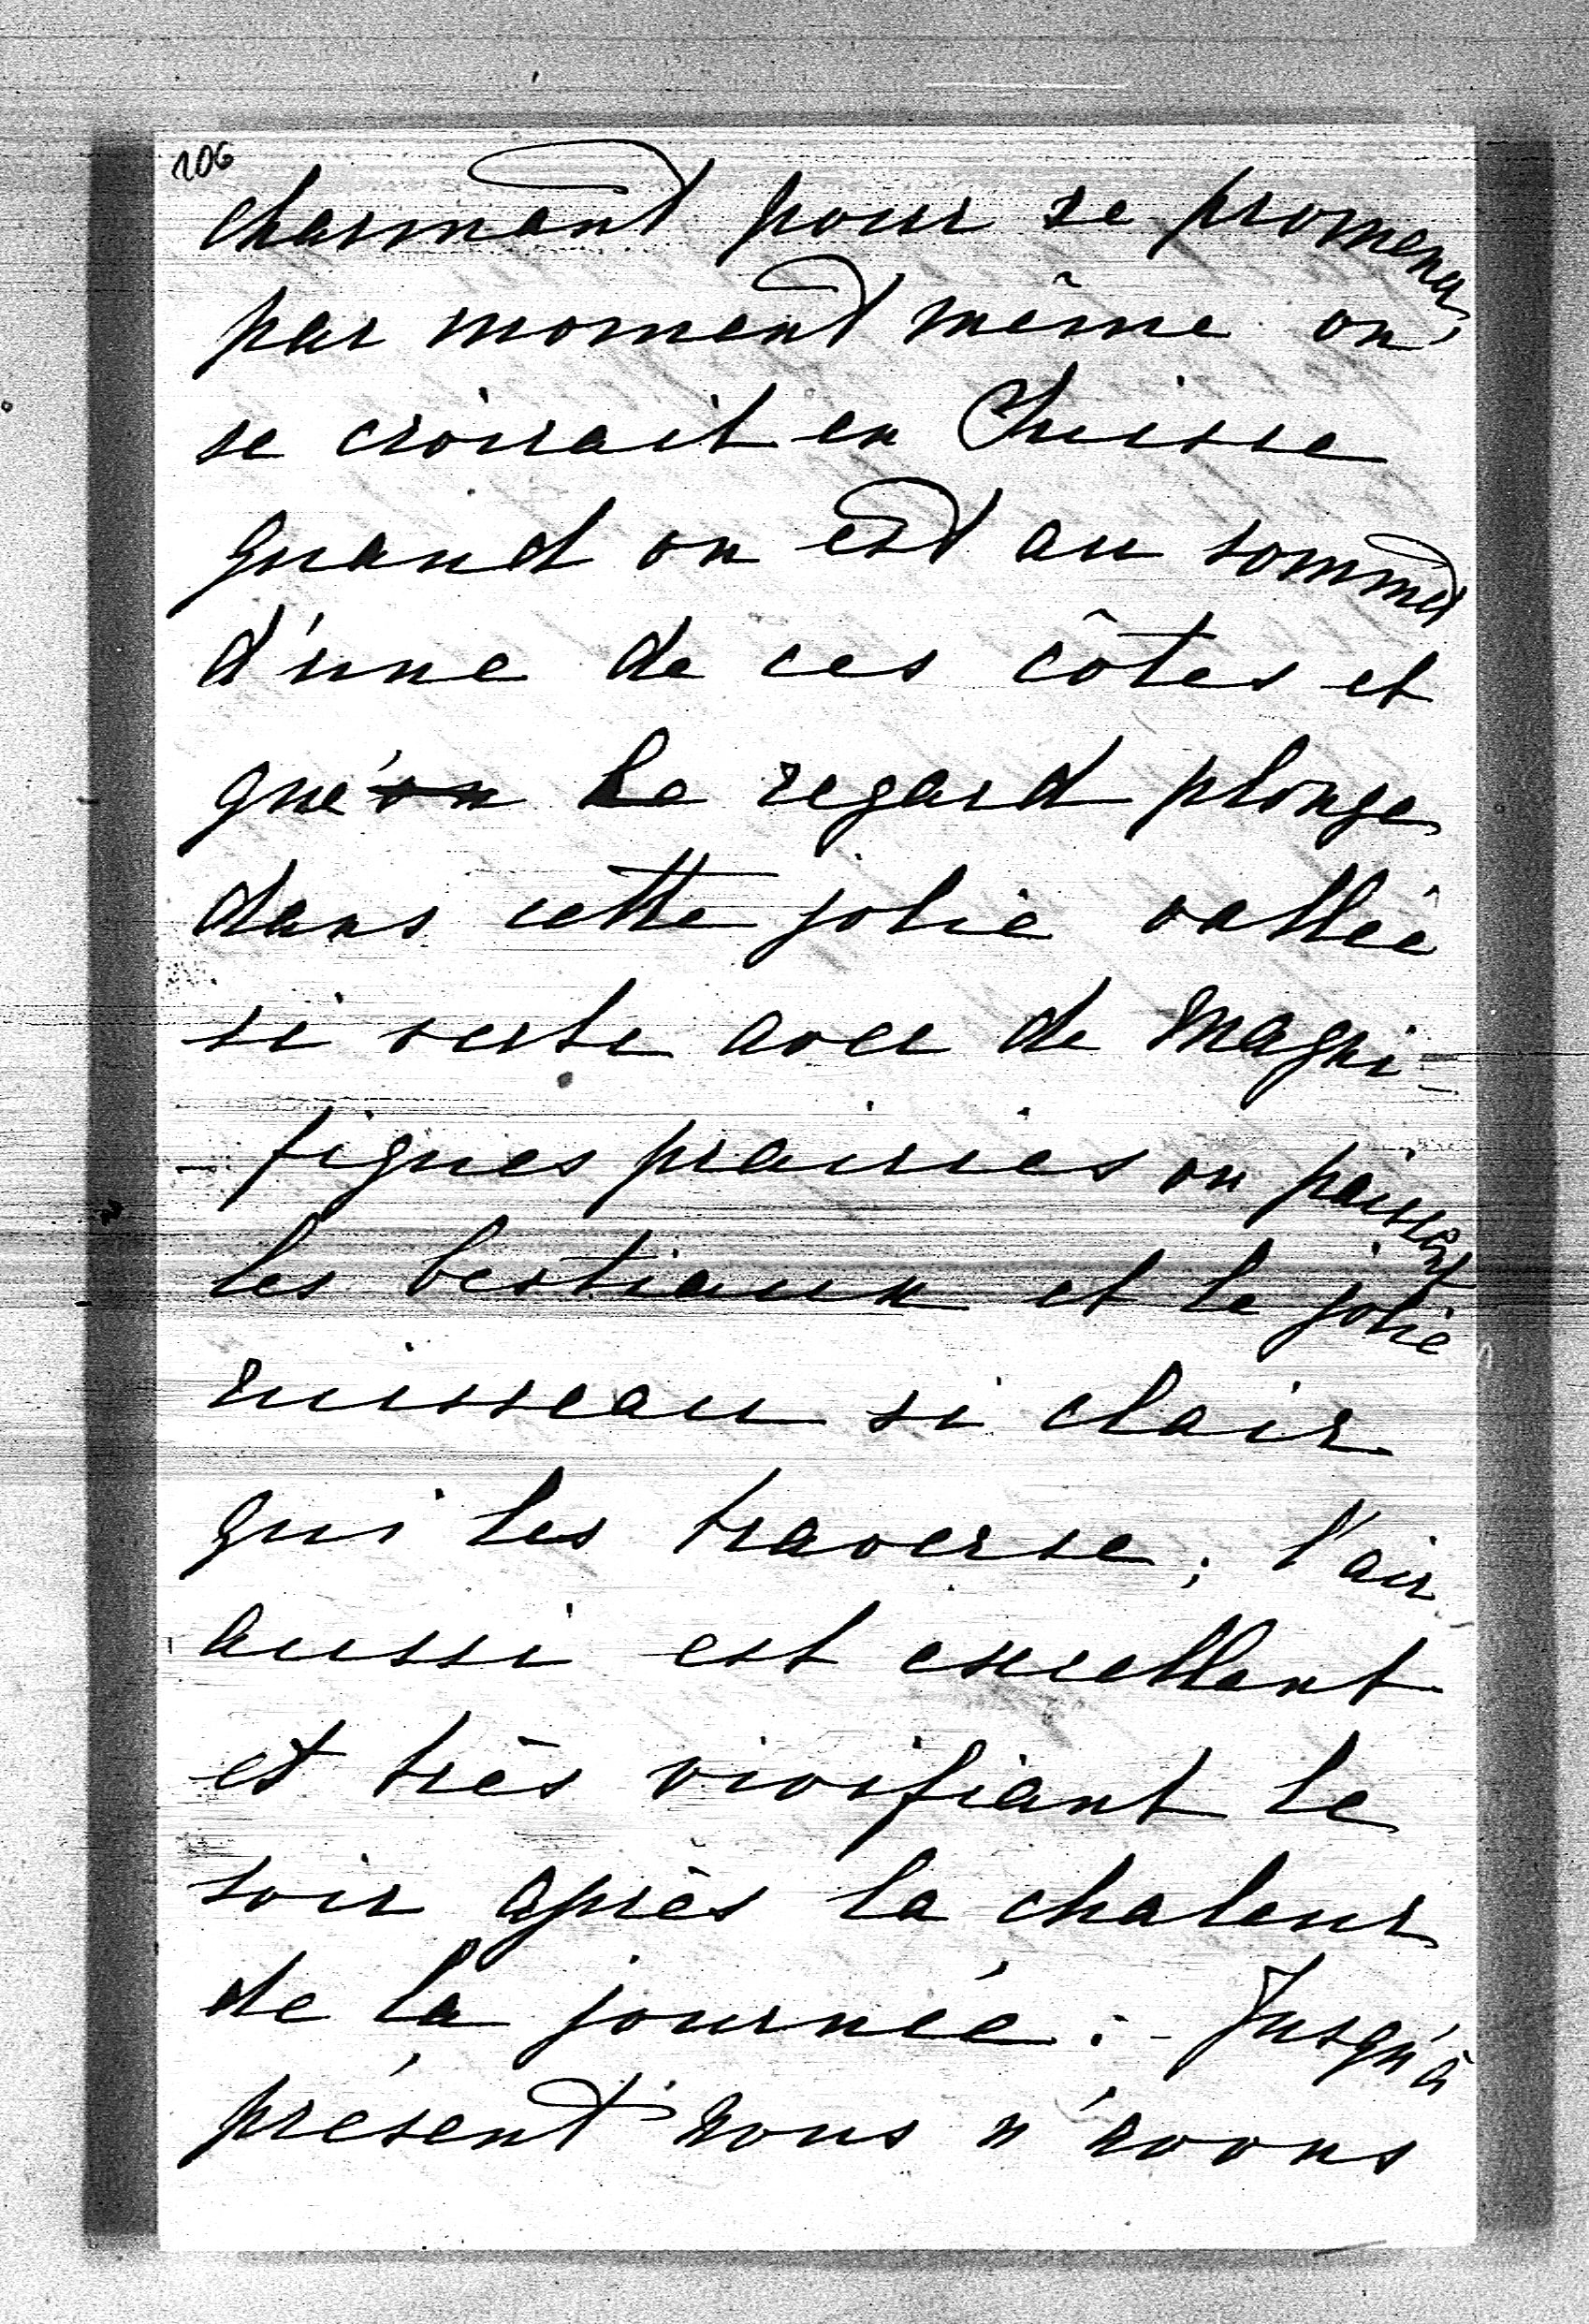 106
charmant pour se promener,
par moment même on
se croirait en Suisse
quand on est au sommet
d'une de ces côtes et
que le regard plonge
dans cette jolie vallée
si verte avec de magni-
fiques prairies ou paissent
les bestiaux et le jolie
ruisseau si clair
qui les traverse ; l'air
aussi est excellent
et très vivifiant le
soir après la chaleur
de la journée. - Jusqu'à
présent nous n'avons